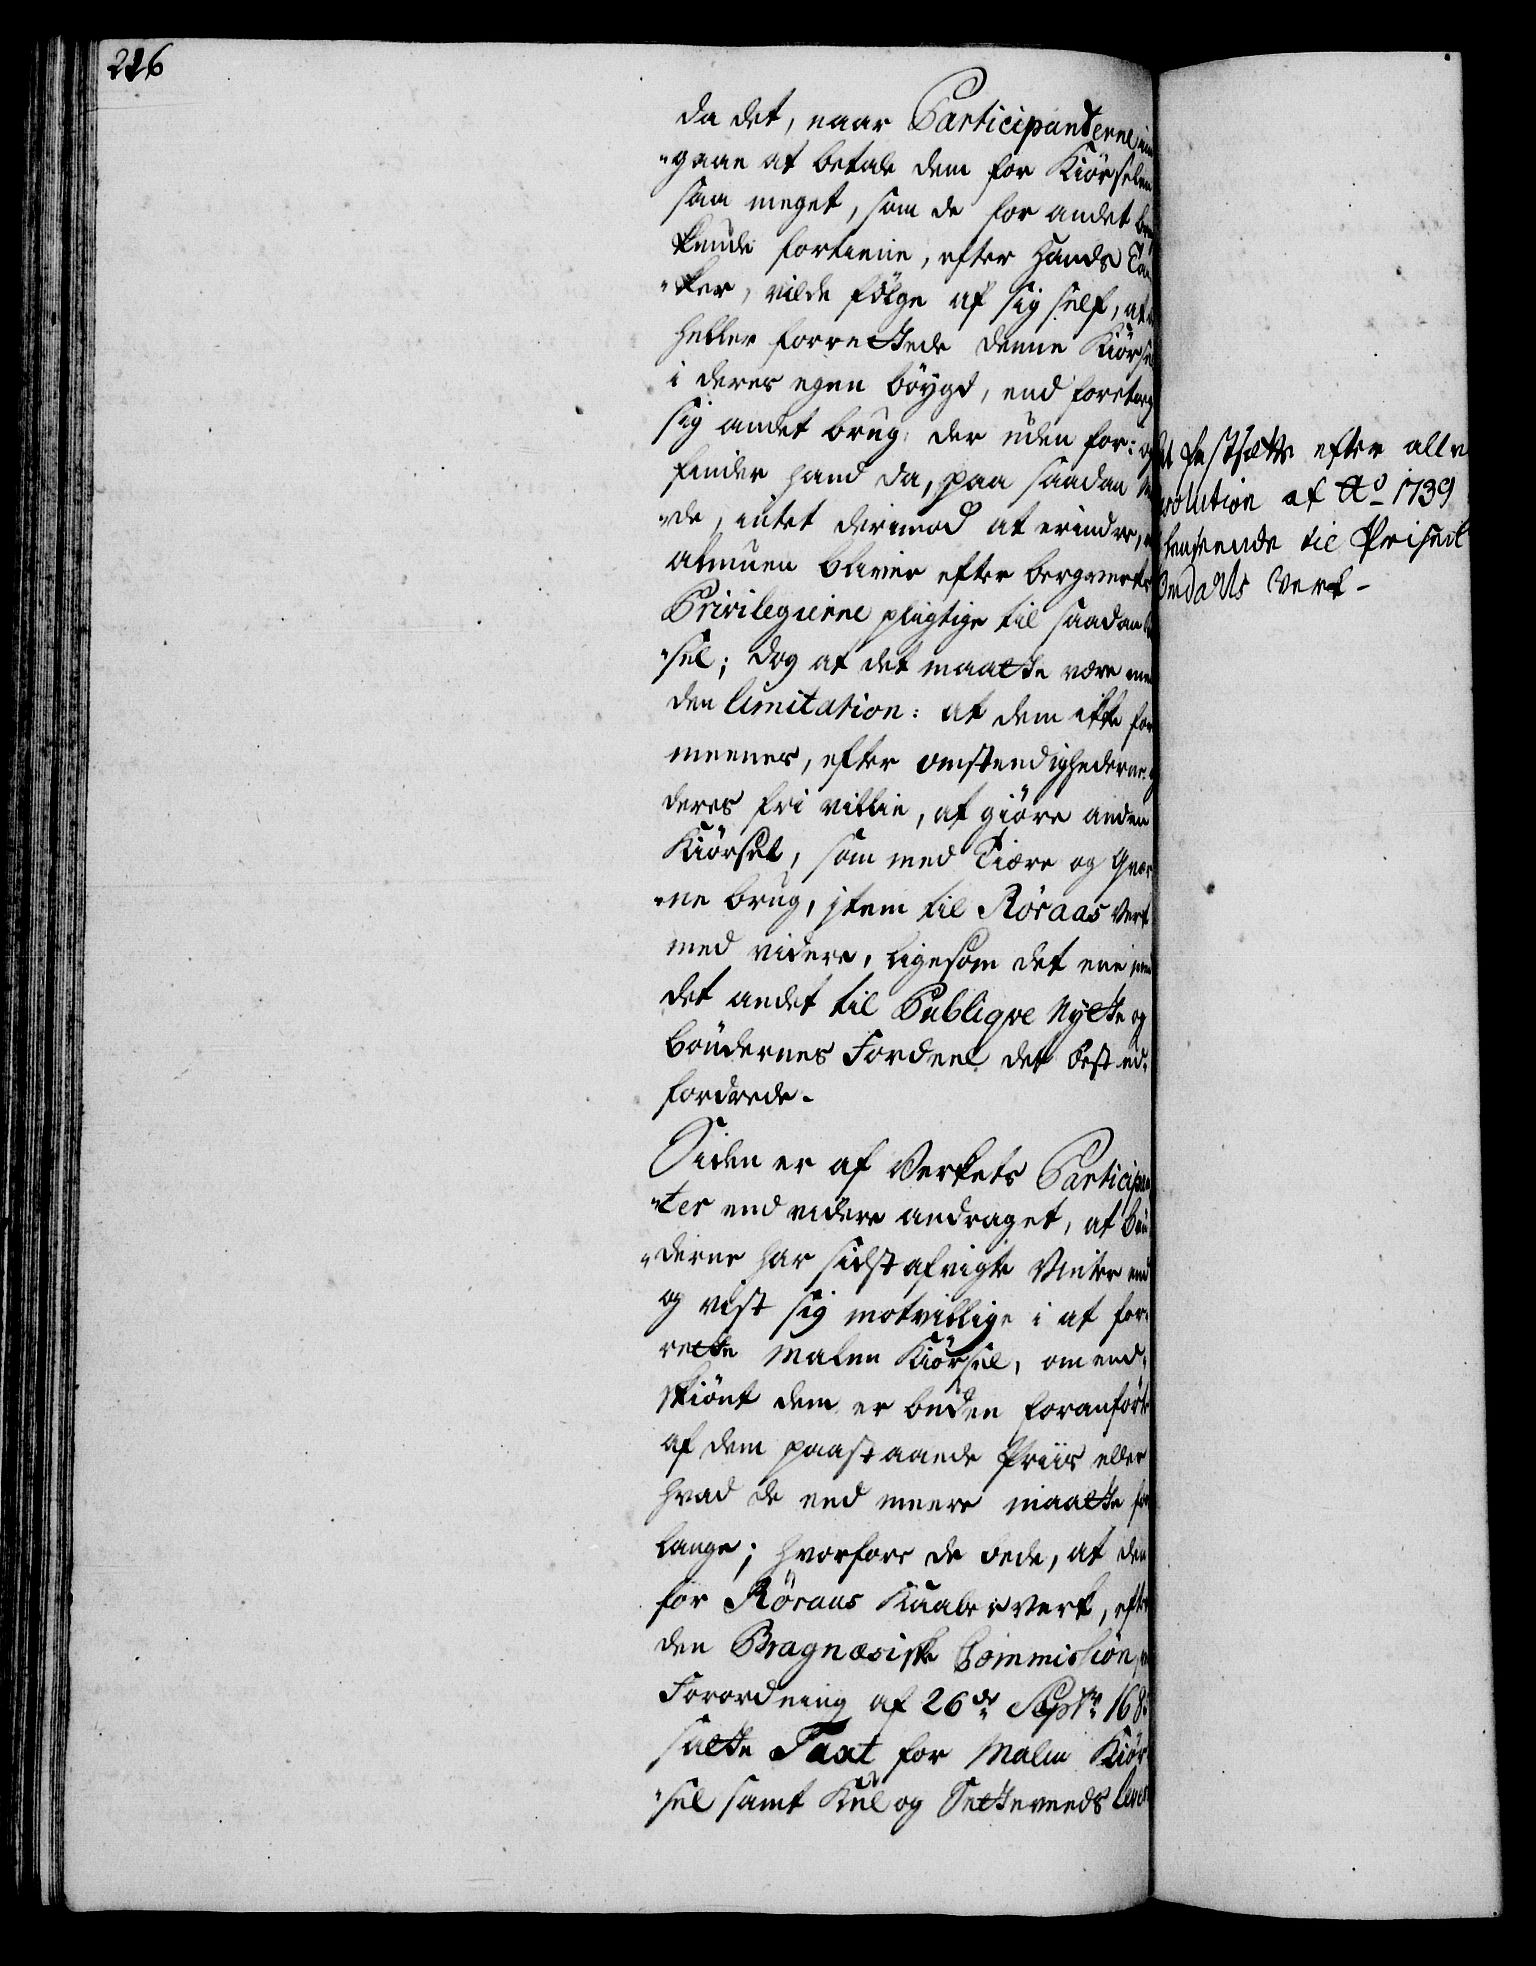 226
da det, naar Participanterne ind
"gaae at betale dem for Kiörselen
saa meget, som de for andet
kunde fortiene, efter Hands Tan
"ker, vilde fölge af sig self, at
heller forrettede denne Kiörsel
i deres egen böygd, end foretog
sig andet brug, der uden for: og
finder hand da, paa saadan
"de, intet derimod at erindre,
almuen bliver efter bergverks
Privilegierne pligtige til saadan
"sel; dog at det maatte være med
den limitation: at dem ikke for
meenes, efter omstendighederne og
deres fri villie, at giöre anden
Kiörsel, som med Tiære og Qvær
"ne brug, item til Röraas Verk
med videre, ligesom det ene
det andet til Publiqve Nytte og
böndernes Fordeel det best ud¬
fordrede.
Siden er af Verkets Participan
"ter end videre andraget, at bön
"derne har sidst afvigte Vinter end
og vist sig motvillige i at for¬
rette Malm Kiörsel, om end¬
skiönt dem er buden foranförte
af dem paastaaende Priis eller
hvad de end meere maatte for
lange; hvorfore de bede, at den
for Röraas Kaaberverk, efter
den Bragnæsiske Commission,
Forordning af 26de Septr 168
satte Taxt for Malm Kiör
"sel samt Kul og Setteveeds Leve
festsætte efter aller
solution af Ao 1739
henseende til Priserne
Verk-